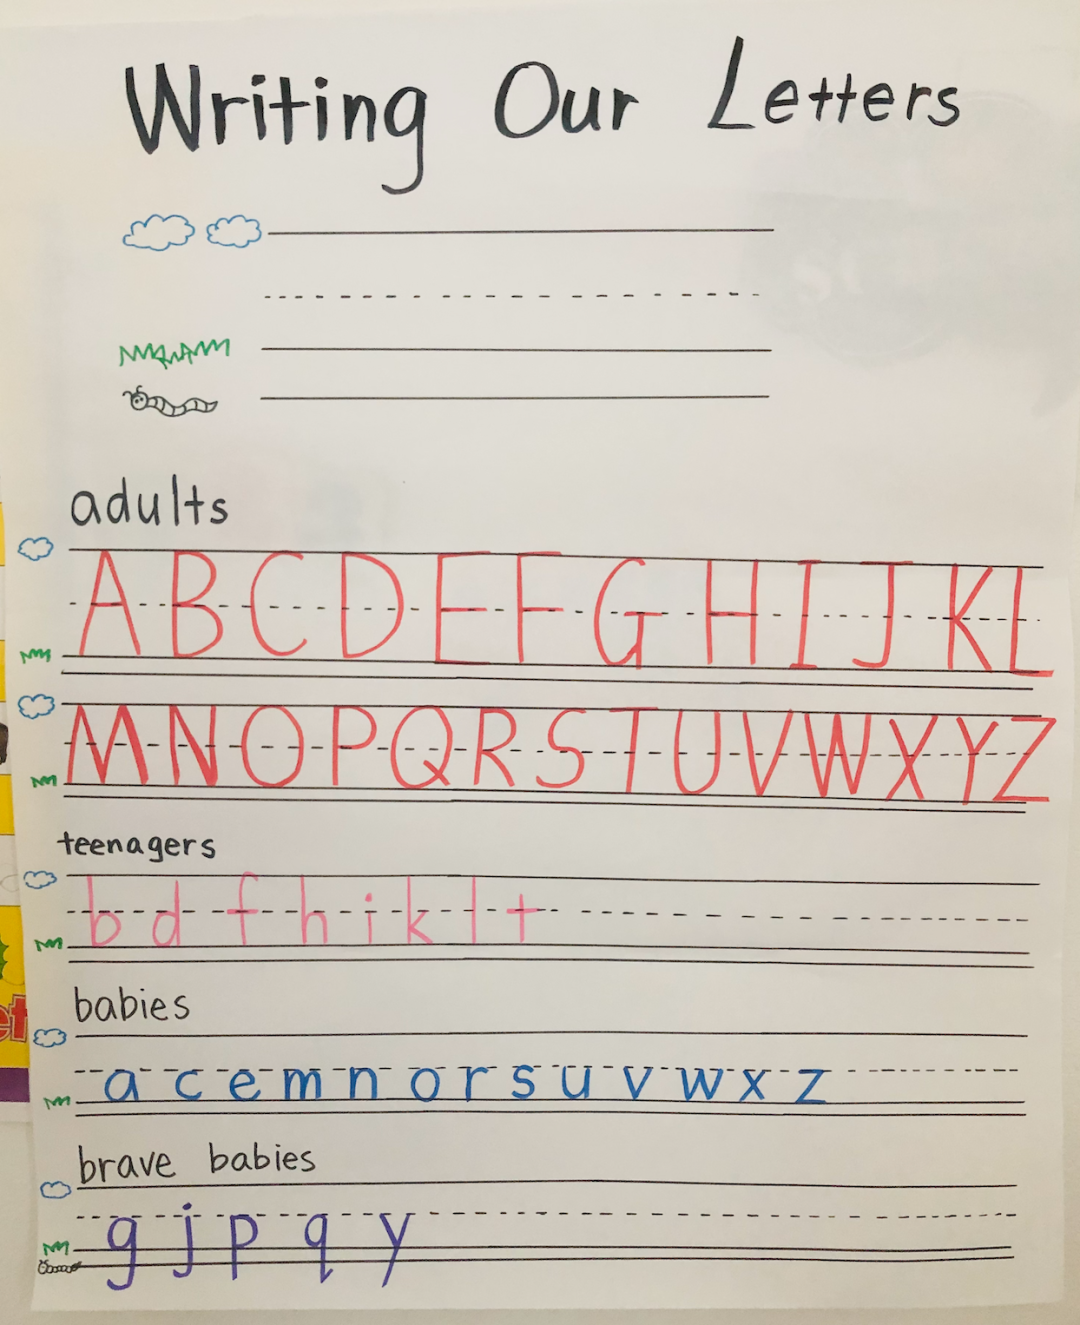 Writing Our Letters
adults
A B C D E F G H I J K L
M N O P Q R S T U V W X Y Z
teenagers
b d f h i k l t
babies
a c e m n o r s u v w x z
brave babies
g j p q y